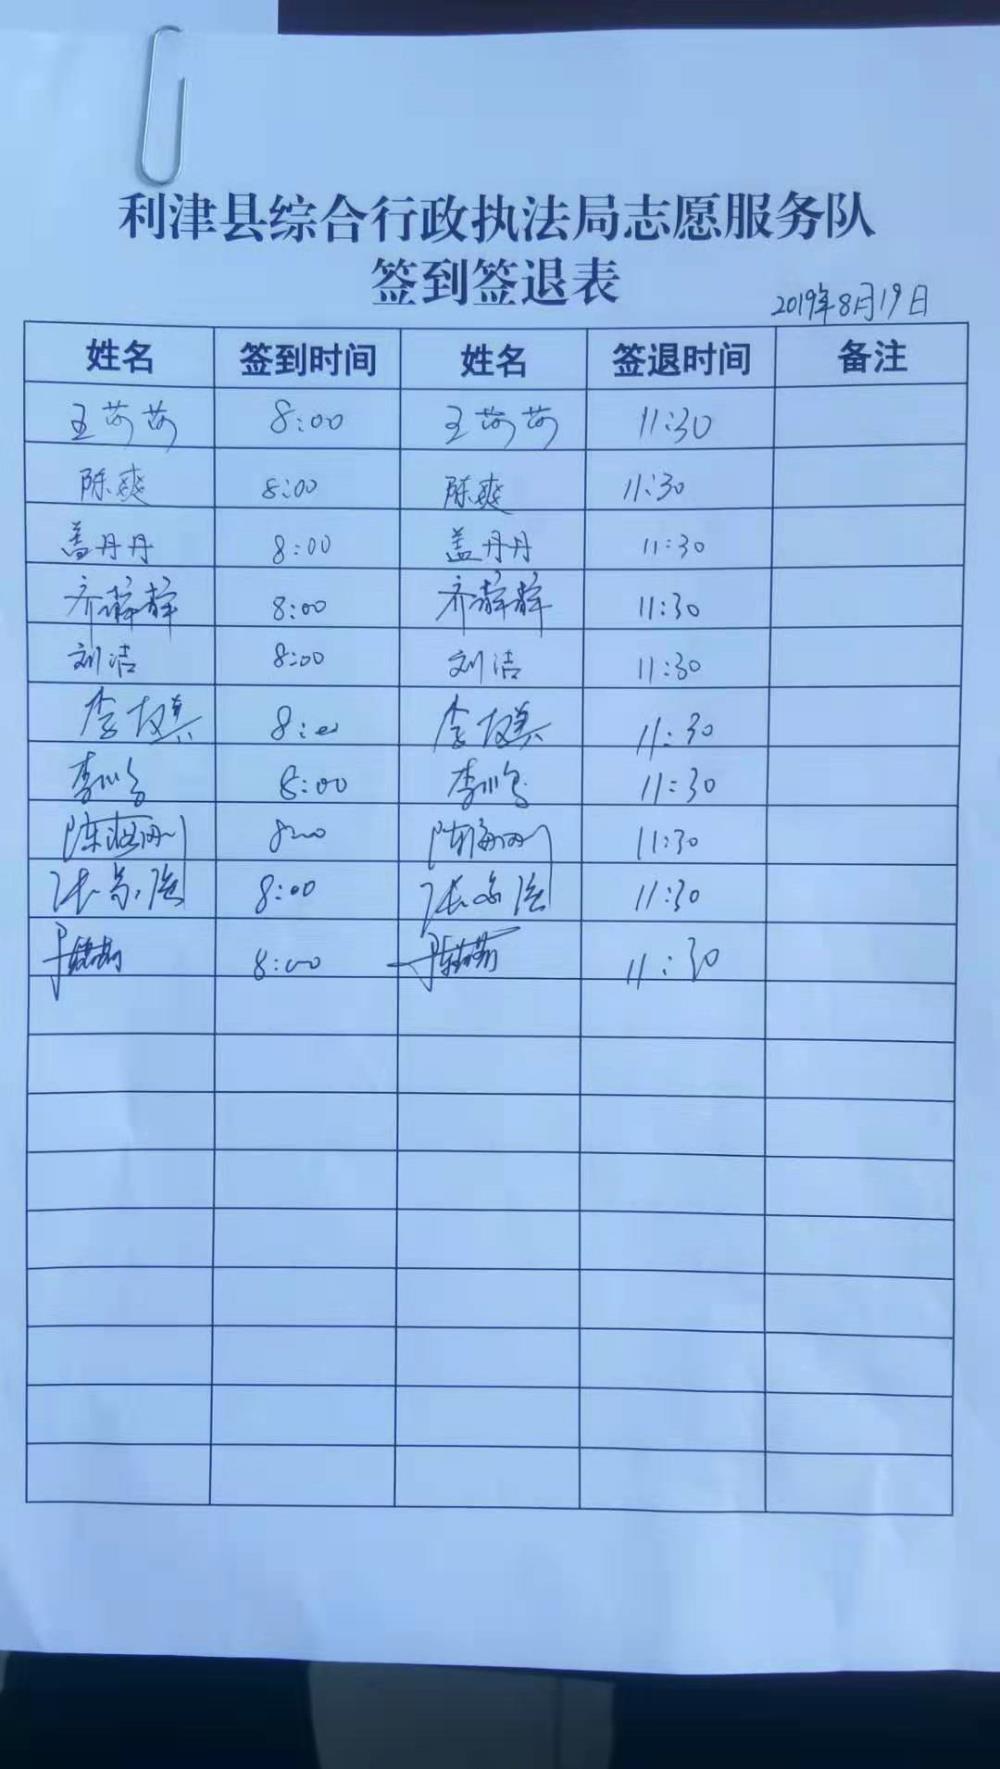 利津县综合行政执法局志愿服务队
签到签退表
2019年8月19日
姓名 签到时间 姓名 签退时间 备注
王苛苛 8:00 王苛苛 11:30
陈爽 8:00 陈爽 11:30
盖丹丹 8:00 盖丹丹 11:30
齐静静 8:00 齐静静 11:30
刘洁 8:00 刘洁 11:30
李 8:00 李 11:30
李 8:00 李 11:30
陈 8:00 陈 11:30
张 8:00 张 11:30
8:00 11:30